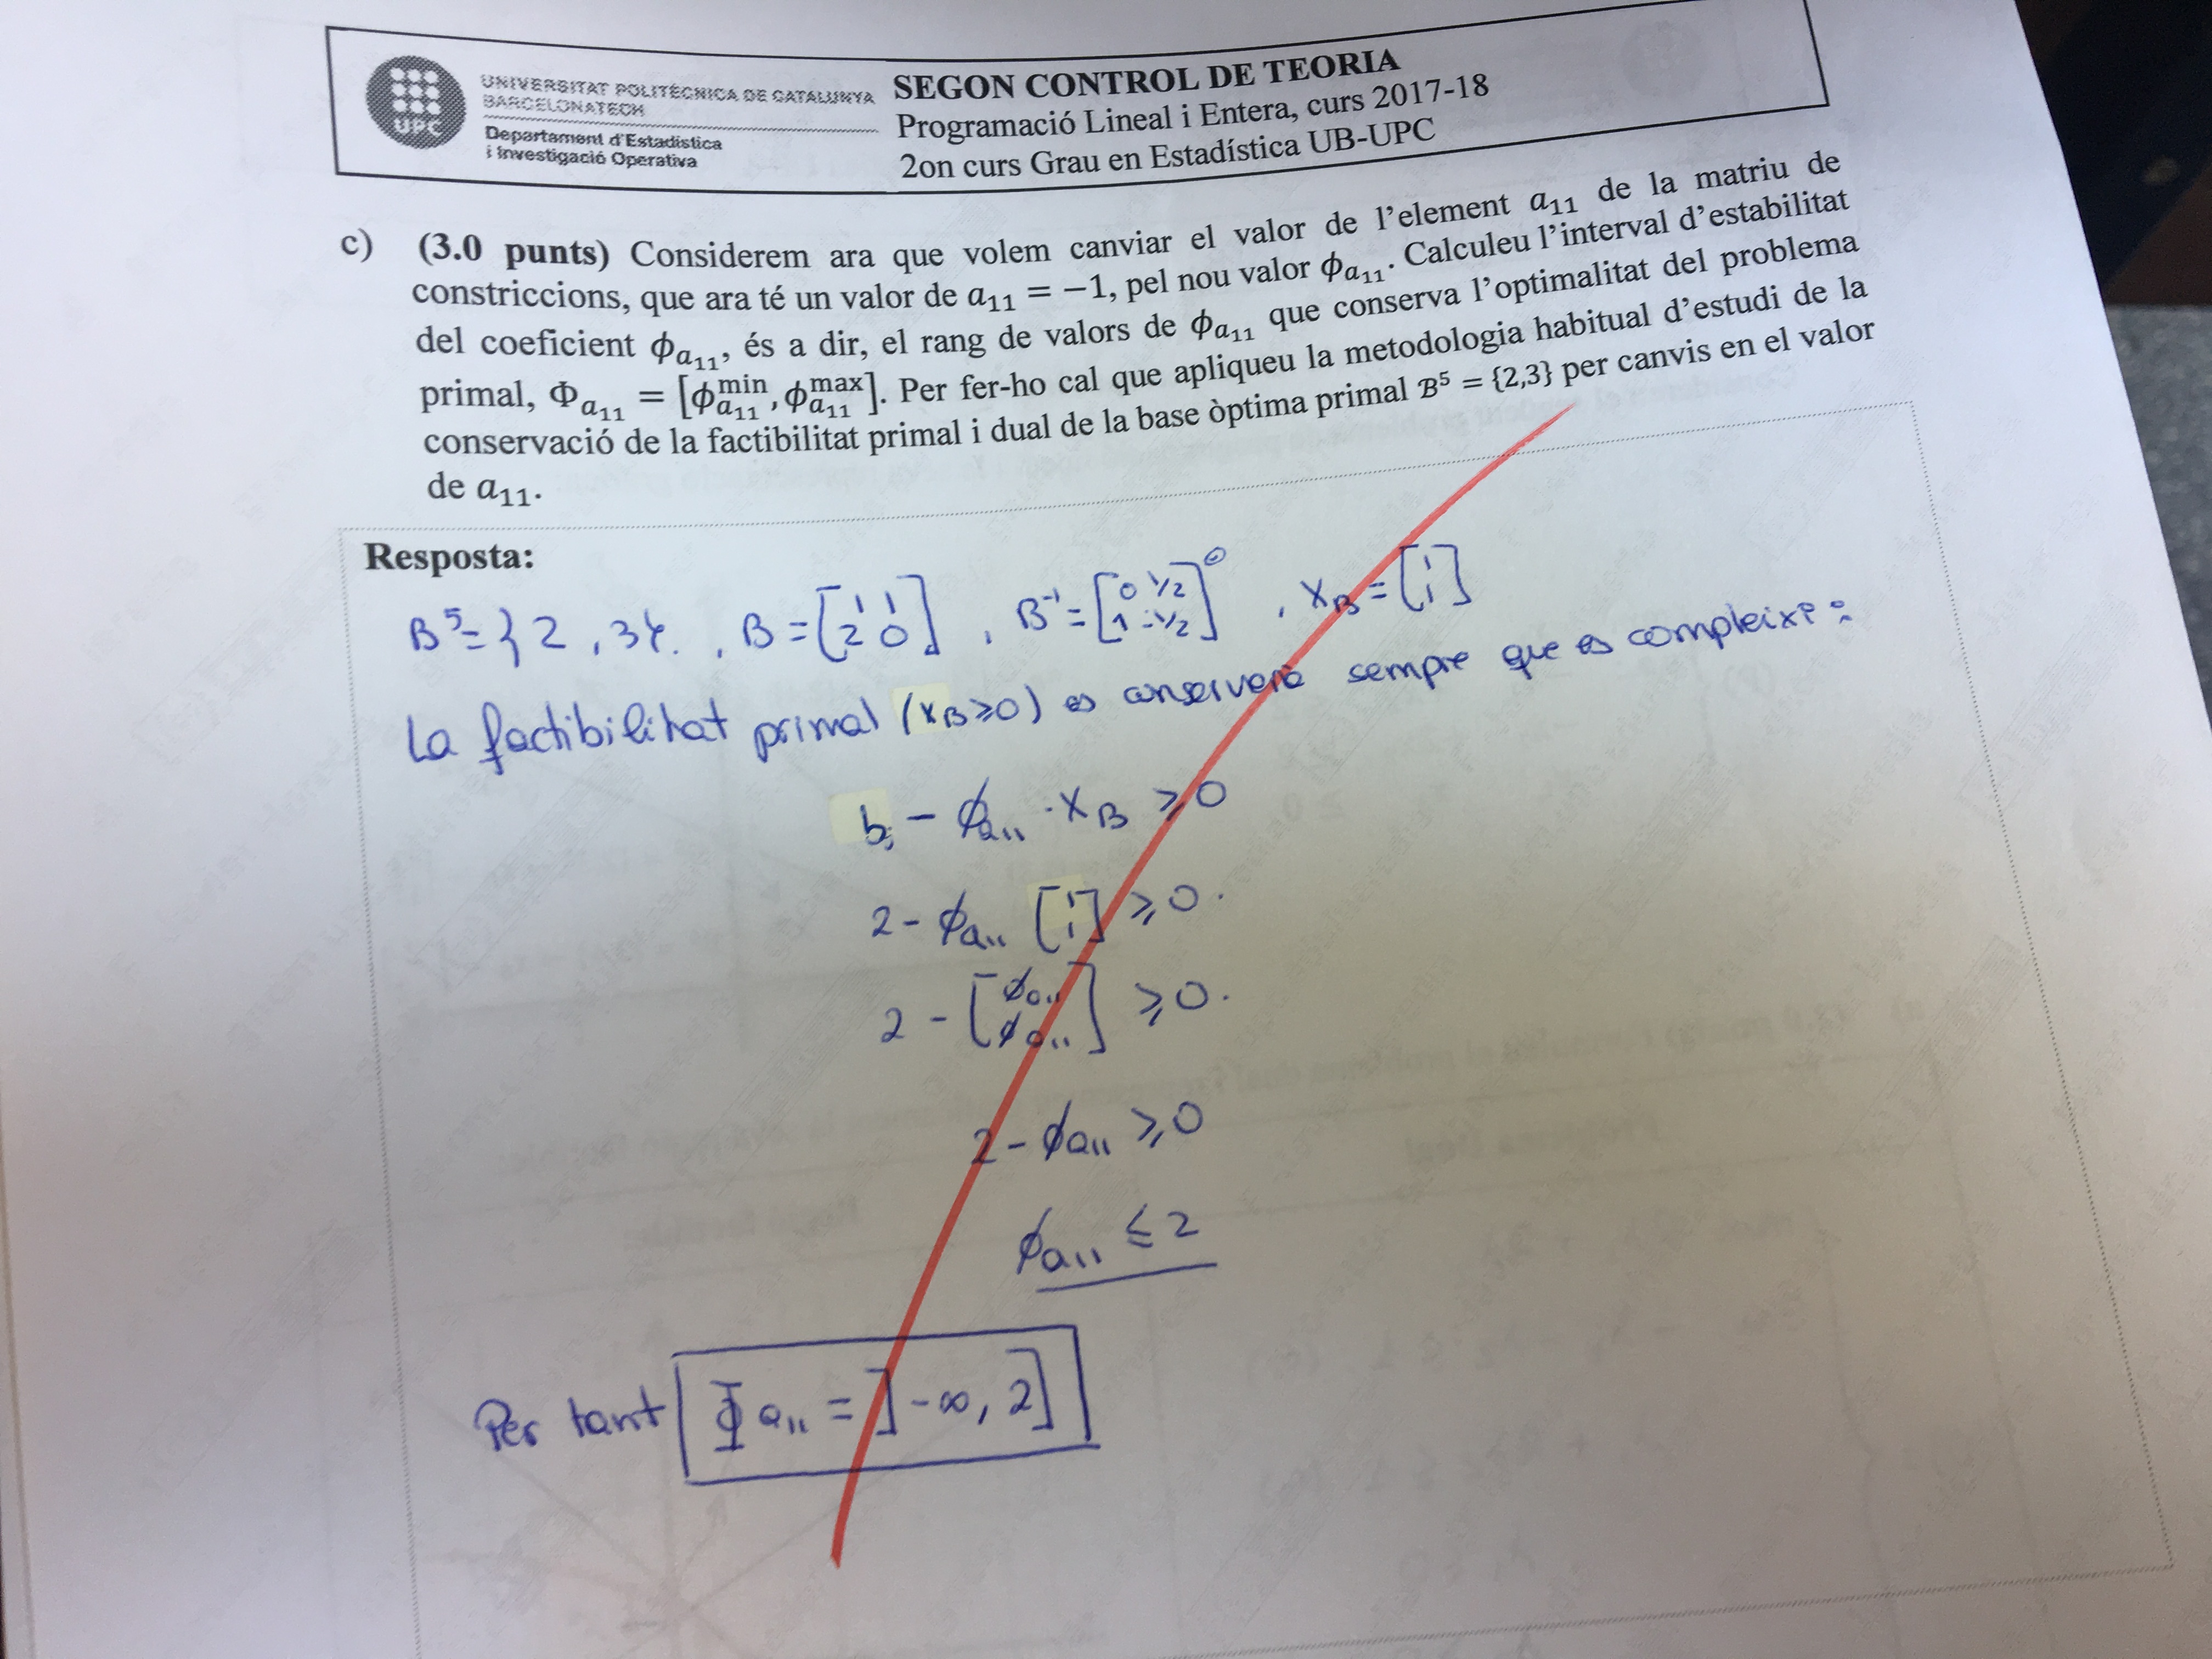 UNIVERSITAT POLITÈCNICA DE CATALUNYA
BARCELONATECH
Departament d'Estadística
i Investigació Operativa
UPC
SEGON CONTROL DE TEORIA
Programació Lineal i Entera, curs 2017-18
2on curs Grau en Estadística UB-UPC
c) (3.0 punts) Considerem ara que volem canviar el valor de l'element a₁₁ de la matriu de
constriccions, que ara té un valor de a₁₁ = −1, pel nou valor ϕa₁₁. Calculeu l'interval d'estabilitat
del coeficient ϕa₁₁, és a dir, el rang de valors de ϕa₁₁ que conserva l'optimalitat del problema
primal, Φa₁₁ = [ϕa₁₁^min, ϕa₁₁^max]. Per fer-ho cal que apliqueu la metodologia habitual d'estudi de la
conservació de la factibilitat primal i dual de la base òptima primal ℬ⁵ = {2,3} per canvis en el valor
de a₁₁.
Resposta:
B⁵= {2, 3}. , B = [1 1; 2 0] , B⁻¹ = [0 1/2; 1 -1/2] , XB = [1; 1]
La factibilitat primal (XB≥0) es conserverà sempre que es compleixi:
bj − ϕa₁₁ · XB ≥ 0
2 - ϕa₁₁ [1; 1] ≥ 0.
2 - [ϕa₁₁; ϕa₁₁] ≥ 0.
2 - ϕa₁₁ ≥ 0
ϕa₁₁ ≤ 2
Per tant Φa₁₁ = ]-∞, 2]